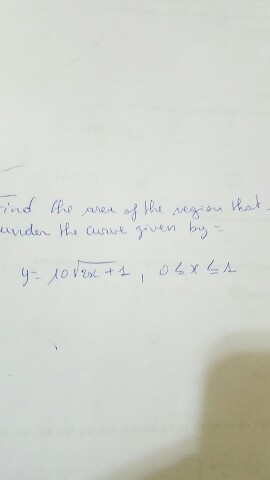 Find the area of the region that
under the curve given by =
y = 10√2x + 1 , 0 ≤ x ≤ 1